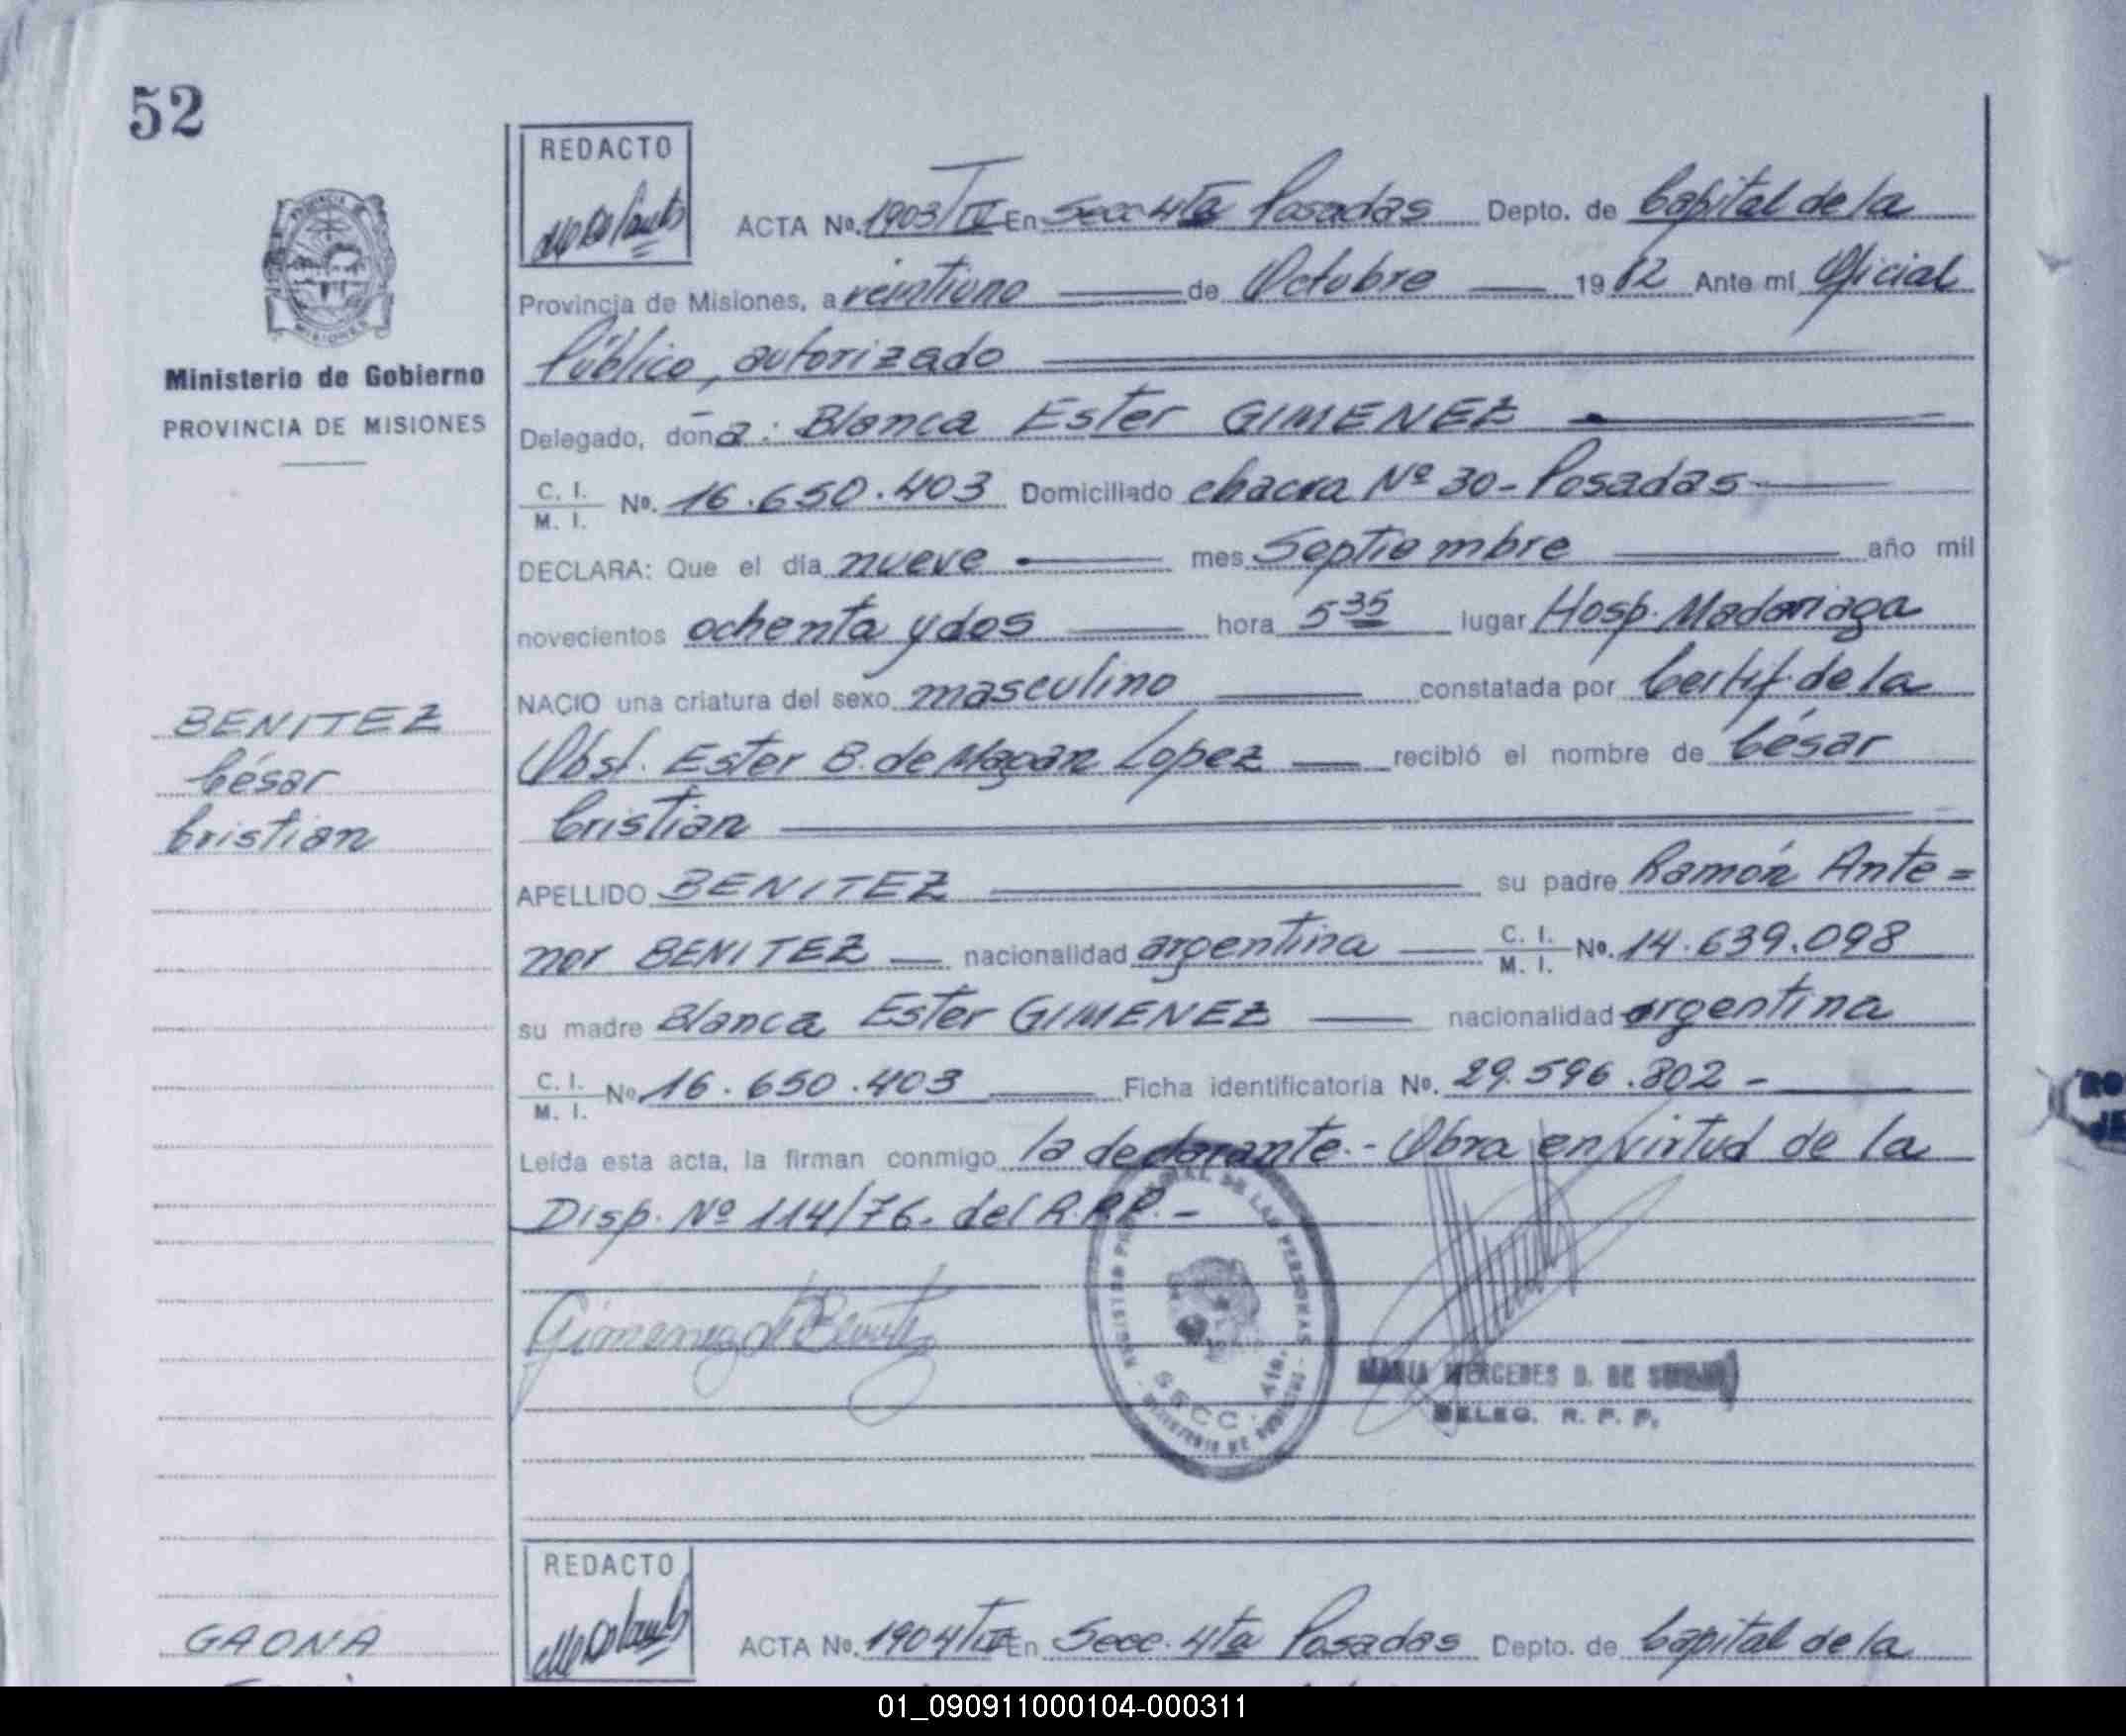 52
REDACTO
ACTA No. 1903/IV En Secc 4ta Posadas Depto. de Capital de la
Provincia de Misiones, a veintiuno de Octubre 1982 Ante mí Oficial
Público, autorizado
Ministerio de Gobierno
PROVINCIA DE MISIONES
Delegado, doña: Blanca Ester GIMENEZ
C. I. / M. I. No. 16.650.403 Domiciliado chacra Nº 30 - Posadas
DECLARA: Que el día nueve mes Septiembre año mil
novecientos ochenta y dos hora 5 35 lugar Hosp. Madariaga
NACIO una criatura del sexo masculino constatada por Certif. de la
Obst. Ester B. de Magan Lopez recibió el nombre de César
Cristian
BENITEZ
César
Cristian
APELLIDO BENITEZ su padre Ramón Ante=
nor BENITEZ nacionalidad argentina C. I. / M. I. No. 14.639.098
su madre Blanca Ester GIMENEZ nacionalidad argentina
C. I. / M. I. No 16.650.403 Ficha identificatoria No. 29.596.802 -
Leída esta acta, la firman conmigo la declarante.- Obra en virtud de la
Disp. Nº 114/76. del R.P.P. -
Gimenez de Benitez
SECC. 4ta.
MARIA MERCEDES D. DE
DELEG. R. P. P.
REDACTO
GAONA
ACTA No. 1904/IV En Secc. 4ta Posadas Depto. de Capital de la
01_090911000104-000311